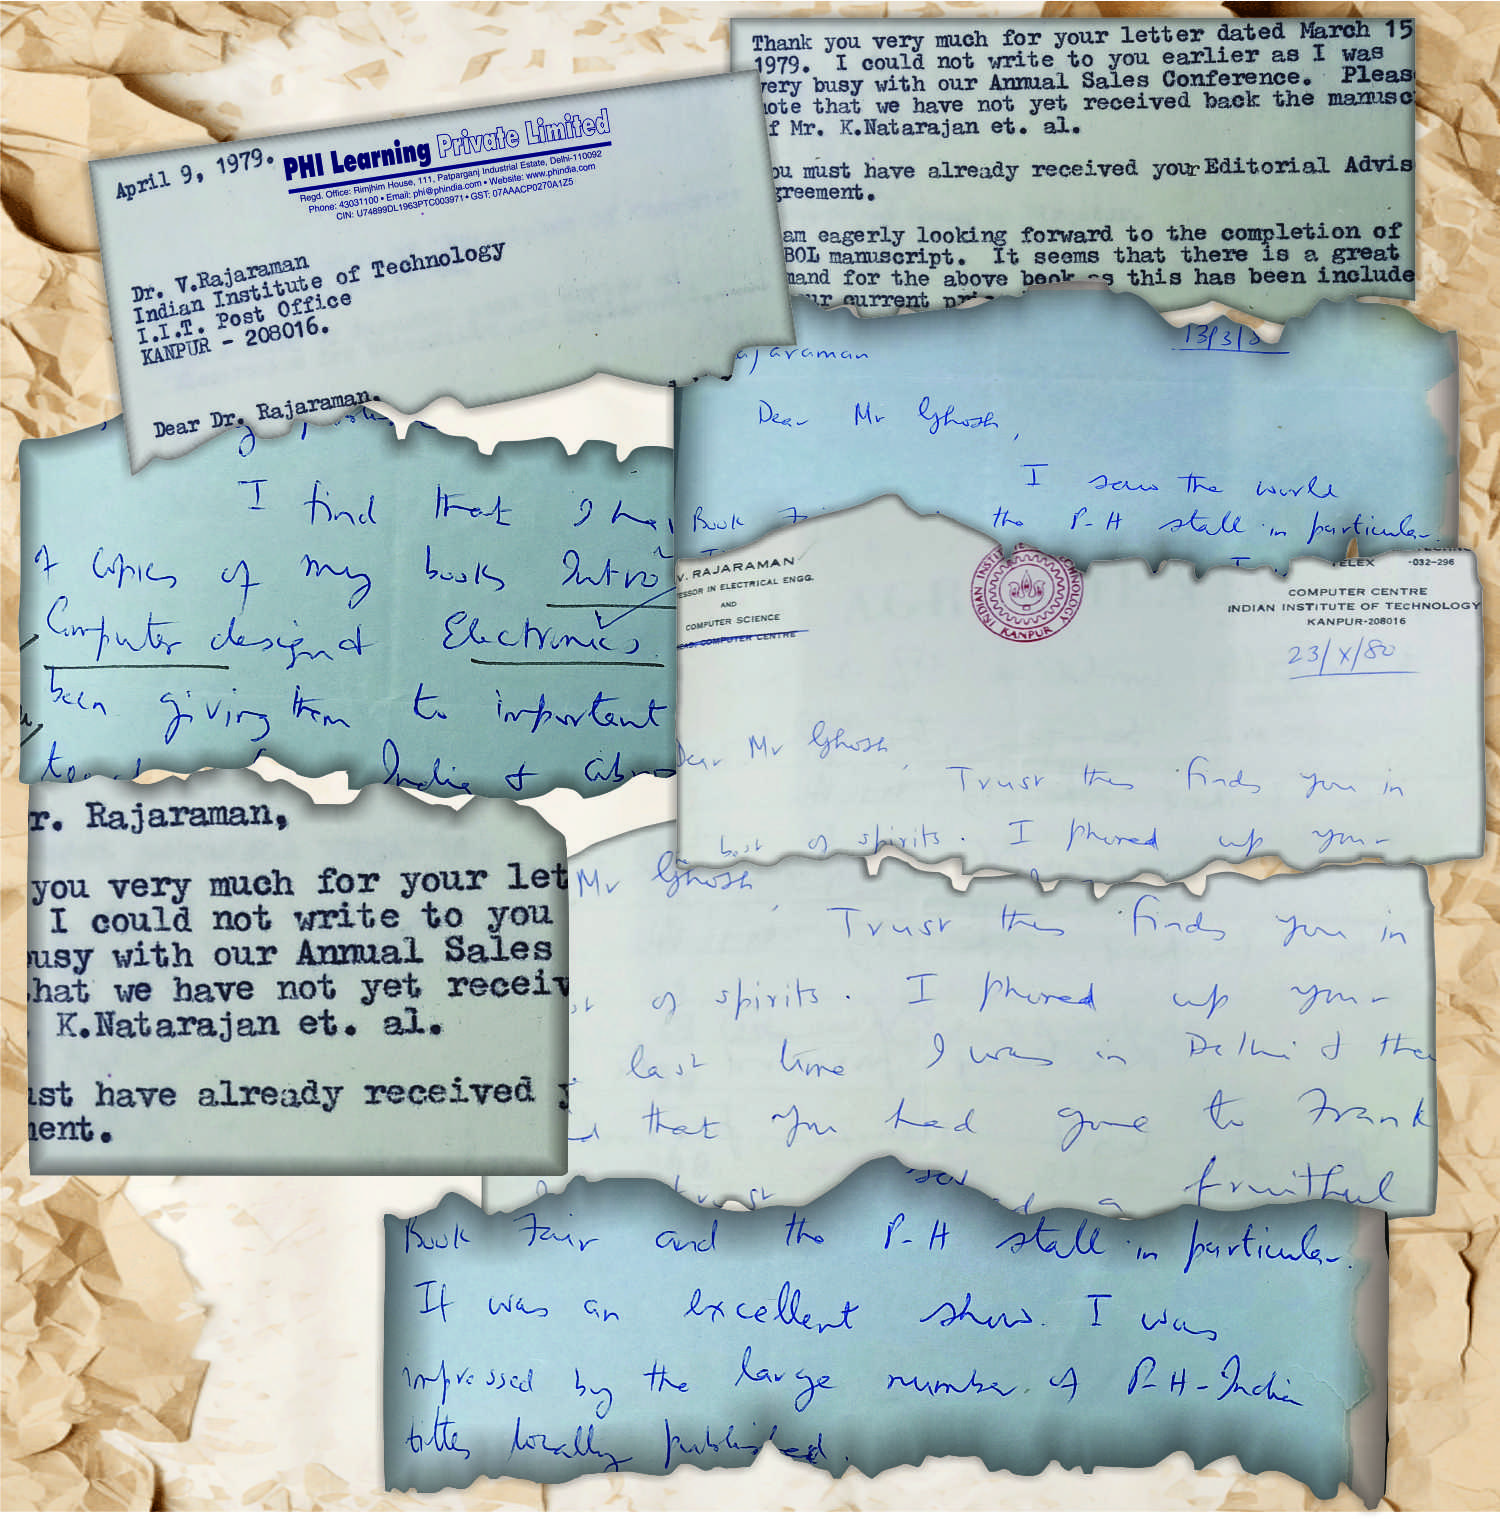 April 9, 1979.
PHI Learning Private Limited
Regd. Office: Rimjhim House, 111, Patparganj Industrial Estate, Delhi-110092
Phone: 43031100 • Email: phi@phindia.com • Website: www.phindia.com
CIN: U74899DL1963PTC003971 • GST: 07AAACP0270A1Z5
Dr. V.Rajaraman
Indian Institute of Technology
I.I.T. Post Office
KANPUR - 208016.
Dear Dr. Rajaraman.
Thank you very much for your letter dated March 15
1979. I could not write to you earlier as I was
very busy with our Annual Sales Conference. Pleas
note that we have not yet received back the manusc
f Mr. K.Natarajan et. al.
ou must have already received your Editorial Advis
greement.
am eagerly looking forward to the completion of
BOL manuscript. It seems that there is a great
mand for the above book as this has been include
ur current pri
ajaraman
13/3/8
Dear Mr Ghosh,
I saw the world
Book Fair the P-H stall in particular.
I find that I ha
of copies of my books Intro
Computer design & Electronics.
been giving them to important
India &
V. RAJARAMAN
ESSOR IN ELECTRICAL ENGG.
AND
COMPUTER SCIENCE
COMPUTER CENTRE
INDIAN INSTITUTE OF TECHNOLOGY
KANPUR
TELEX -032-296
COMPUTER CENTRE
INDIAN INSTITUTE OF TECHNOLOGY
KANPUR-208016
23/X/80
Dear Mr Ghosh,
Trust this finds you in
best of spirits. I phoned up your
r. Rajaraman,
you very much for your let
I could not write to you
busy with our Annual Sales
hat we have not yet receiv
K.Natarajan et. al.
ust have already received y
ment.
Mr Ghosh,
Trust this finds you in
st of spirits. I phoned up your
last time I was in Delhi & the
that you had gone to Frank
trust a fruitful
Book Fair and the P-H stall in particular.
It was an excellent show. I was
impressed by the large number of P-H-India
titles locally published.